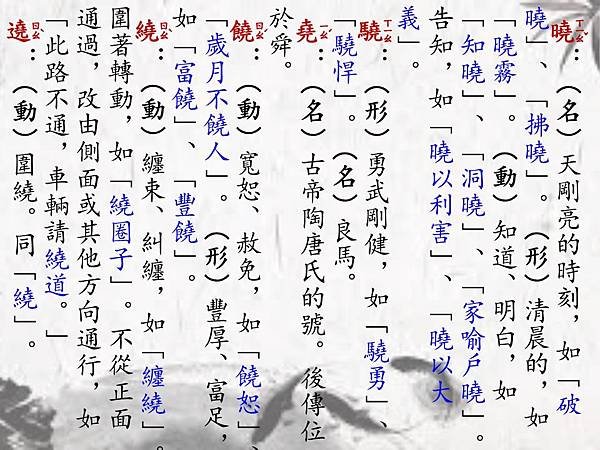 曉ㄒㄧㄠˇ：（名）天剛亮的時刻，如「破
曉」、「拂曉」。（形）清晨的，如
「曉霧」。（動）知道、明白，如
「知曉」、「洞曉」、「家喻戶曉」。
告知，如「曉以利害」、「曉以大
義」。
驍ㄒㄧㄠ：（形）勇武剛健，如「驍勇」、
「驍悍」。（名）良馬。
堯ㄧㄠˊ：（名）古帝陶唐氏的號。後傳位
於舜。
饒ㄖㄠˊ：（動）寬恕、赦免，如「饒恕」、
「歲月不饒人」。（形）豐厚、富足，
如「富饒」、「豐饒」。
繞ㄖㄠˋ：（動）纏束、糾纏，如「纏繞」。
圍著轉動，如「繞圈子」。不從正面
通過，改由側面或其他方向通行，如
「此路不通，車輛請繞道。」
遶ㄖㄠˋ：（動）圍繞。同「繞」。